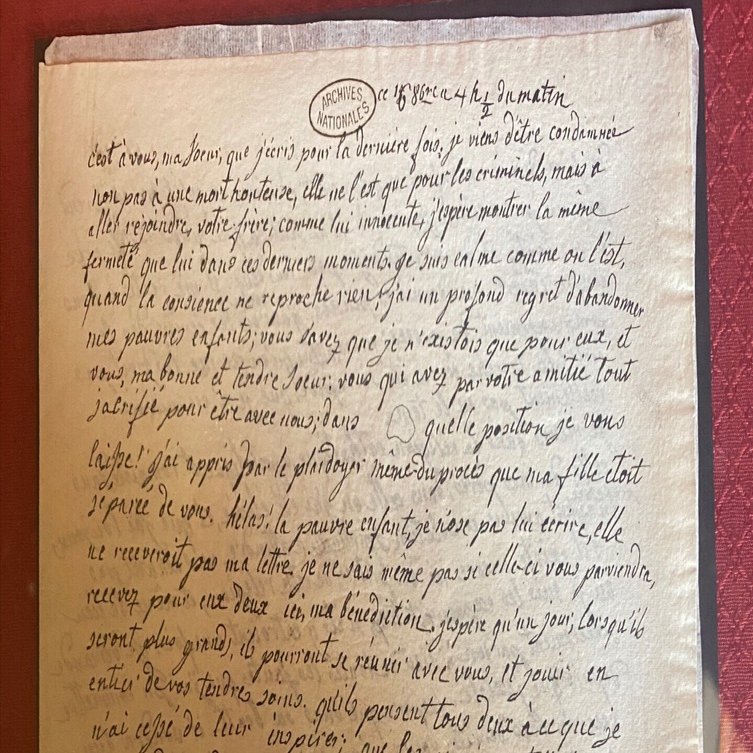 ARCHIVES
NATIONALES
ce 16 8bre a 4 h 1/2 du matin
c'est à vous, ma soeur, que j'écris pour la dernière fois. je viens d'être condamnée
non pas à une mort honteuse, elle ne l'est que pour les criminels, mais à
aller rejoindre votre frère; comme lui innocente, j'espère montrer la même
fermeté que lui dans ces derniers moments. je suis calme comme on l'est,
quand la consience ne reproche rien; j'ai un profond regret d'abandonner
mes pauvres enfants; vous savez que je n'existois que pour eux, et
vous, ma bonne et tendre soeur; vous qui avez par votre amitié tout
sacrifié pour être avec nous; dans quelle position je vous
laisse! j'ai appris par le plaidoyer même du procès que ma fille étoit
séparée de vous. hélas! la pauvre enfant, je n'ose pas lui écrire, elle
ne receveroit pas ma lettre je ne sais même pas si celle-ci vous parviendra,
recevez pour eux deux ici, ma bénédiction. j'espère qu'un jour, lorsqu'ils
seront plus grands, ils pourront se reunir avec vous, et jouir en
entier de vos tendres soins. qu'ils pensent tous deux à ce que je
n'ai cessé de leur inspirer: que les